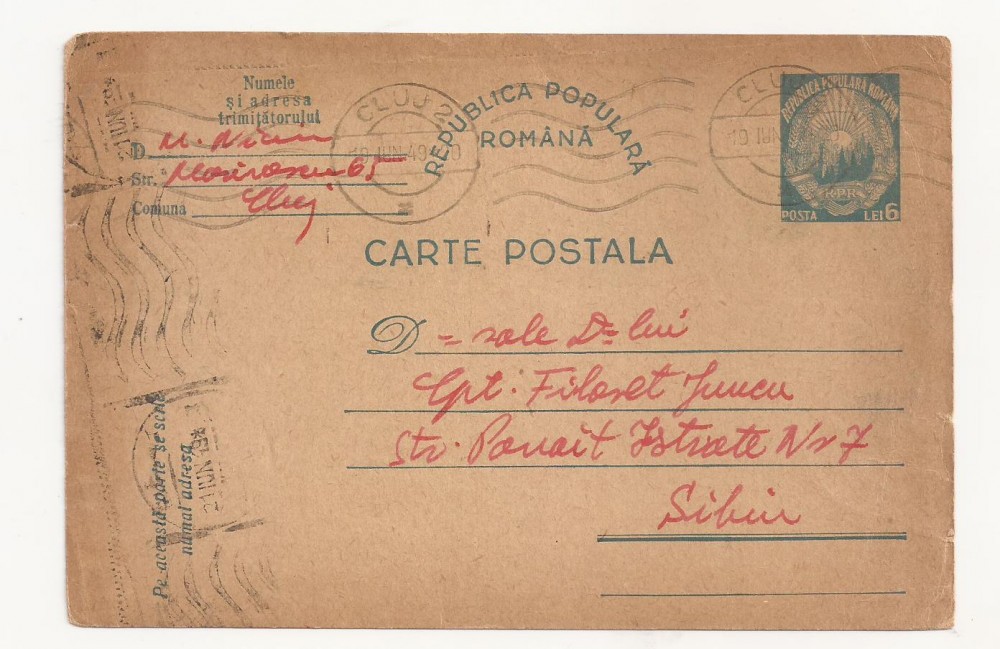 Numele
și adresa
trimițătorului
D. M.
Str. 65
Comuna Cluj
CLUJ 2
JUN.49
REPUBLICA POPULARĂ
ROMÂNĂ
CLUJ
19 IUN
REPUBLICA POPULARA ROMÂNA
RPR
POSTA LEI 6
CARTE POSTALA
D-sale D-lui
Cpt. Filoret Juncu
Str. Panait Istrate Nr 7
Sibiu
Pe această parte se scrie
numai adresa